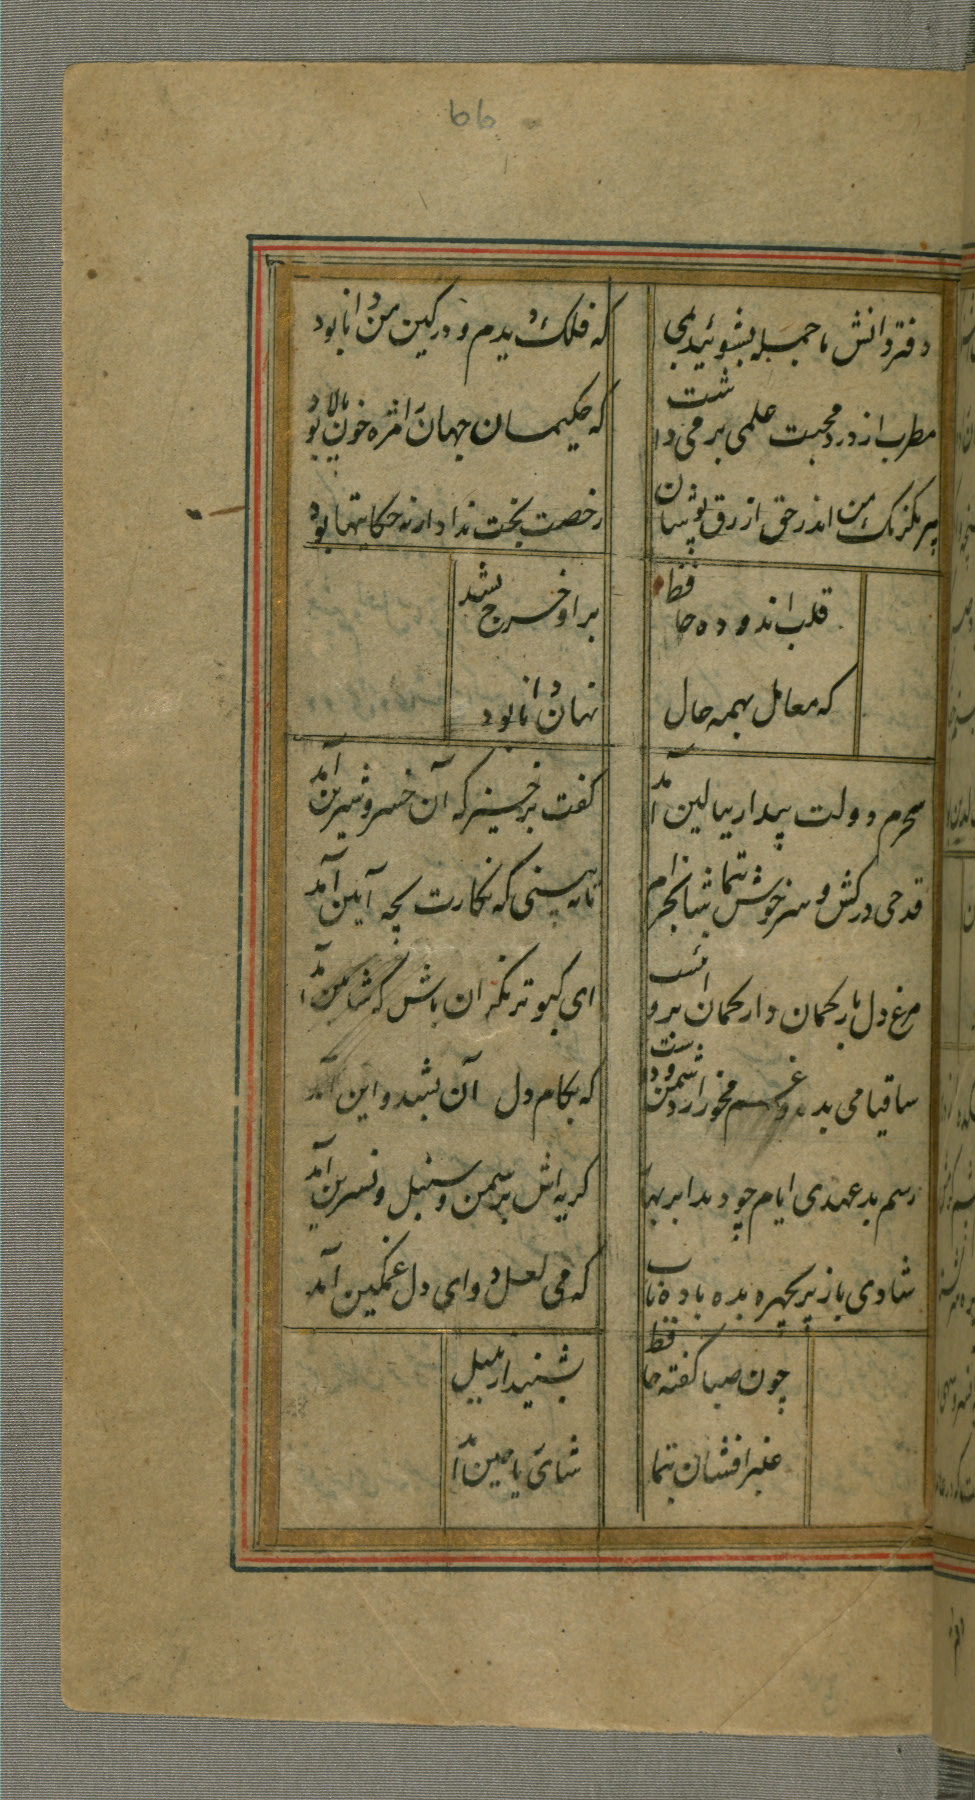 دفتر دانش ما جمله بشوئید بمی
که فلک دیدم و در کین من دانا بود
مطرب از درد محبت علمی بر می داشت
که حکیمان جهان را مژه خون پالا بود
پیر کلرنک من اندر حق ازرق پوشان
رخصت خبث نداد ار نه حکایتها بود
قلب اندوده حافظ
بر او خرج نشد
که معامل بهمه حال
نهان دانا بود
سحرم دولت بیدار ببالین آمد
کفت برخیز که آن خسرو شیرین آمد
قدحی درکش و سرخوش بتماشا بخرام
تا به بینی که نکارت بچه آیین آمد
مرغ دل باز کمان دار کمان ابروئست
ای کبوتر نکران باش که شاهین آمد
ساقیا می بده و غم مخور از دشمن و دوست
که بکام دل آن بشد و این آمد
رسم بد عهدی ایام چو دید ابر بهار
کریه اش بر سمن و سنبل و نسرین آمد
شادی باز پریچهره بده باده ناب
که می لعل دوای دل غمکین آمد
چون صبا کفته حافظ
بشنید از بلبل
عنبر افشان بتما
شای یاحین آمد